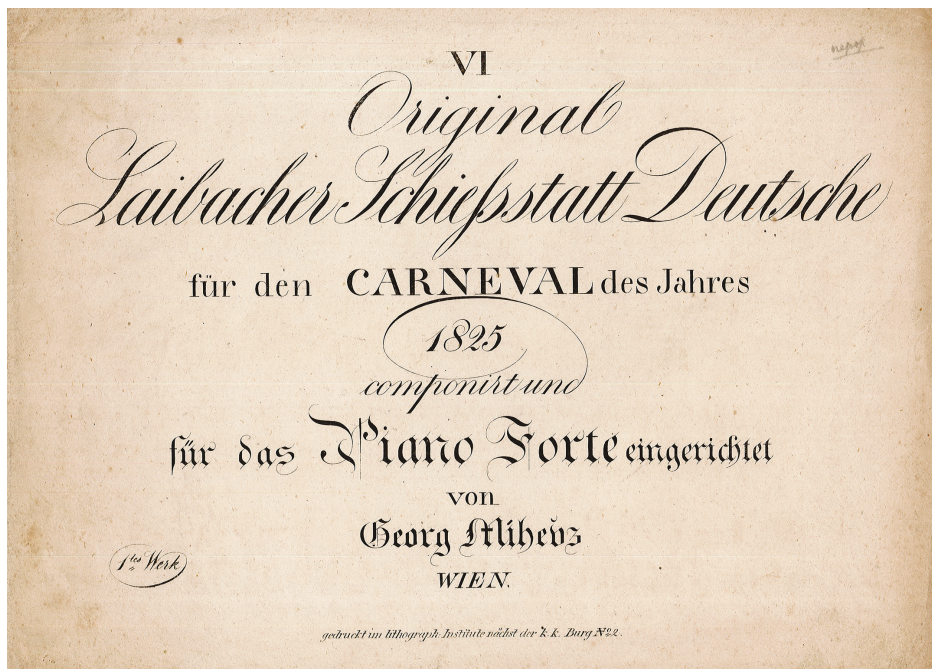 VI
Original
Laibacher Schießstatt Deutsche
für den CARNEVAL des Jahres
1825
componirt und
für das Piano Forte eingerichtet
von
Georg Mihevz
1tes Werk
WIEN.
gedruckt im lithograph. Institute nächst der k. k. Burg No 22.